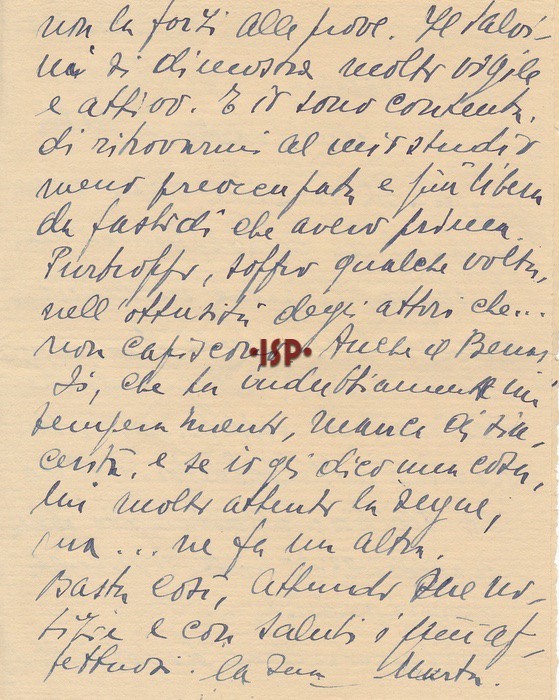 non la forzi alle prove. Il Salvi-
ni si dimostra molto vigile
e attivo. E io sono contenta
di ritrovarmi al mio studio
meno preoccupata e più libera
da fastidi che avevo prima.
Purtroppo, soffro qualche volta,
nell'ottusità degli attori che...
non capiscono. Anche il Benas-
si, che ha indubbiamente un
temperamento, manca di sin-
cerità, e se io gli dico una cosa,
lui molto attento la segue,
ma... ne fa un altra.
Basta così, attendo Sue no-
tizie e con saluti i più af-
fettuosi. la Sua Marta.
·ISP·